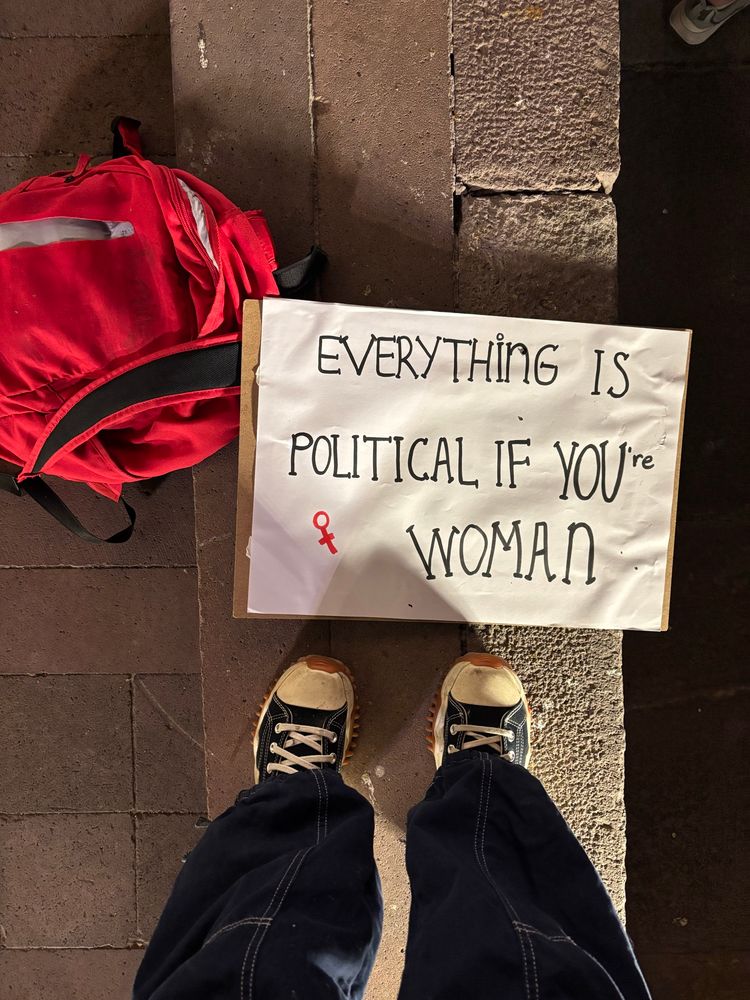 EVERYTHING IS
POLITICAL IF YOU're
WOMAN